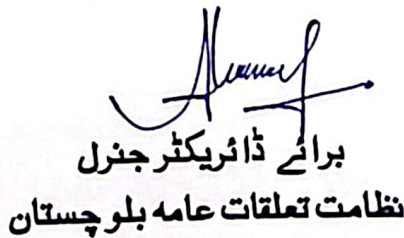 برائے ڈائریکٹر جنرل
نظامت تعلقات عامہ بلوچستان